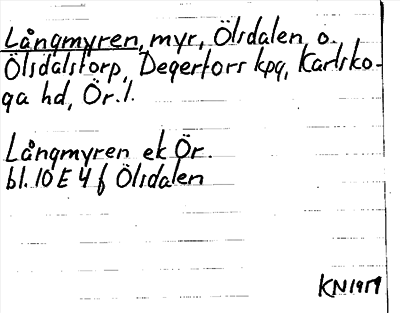 Långmyren, myr, Ölsdalen, o.
Ölsdalstorp, Degerfors kpg, Karlsko-
ga hd, Ör.l.
Långmyren ek Ör.
bl. 10 E 4 f Ölsdalen